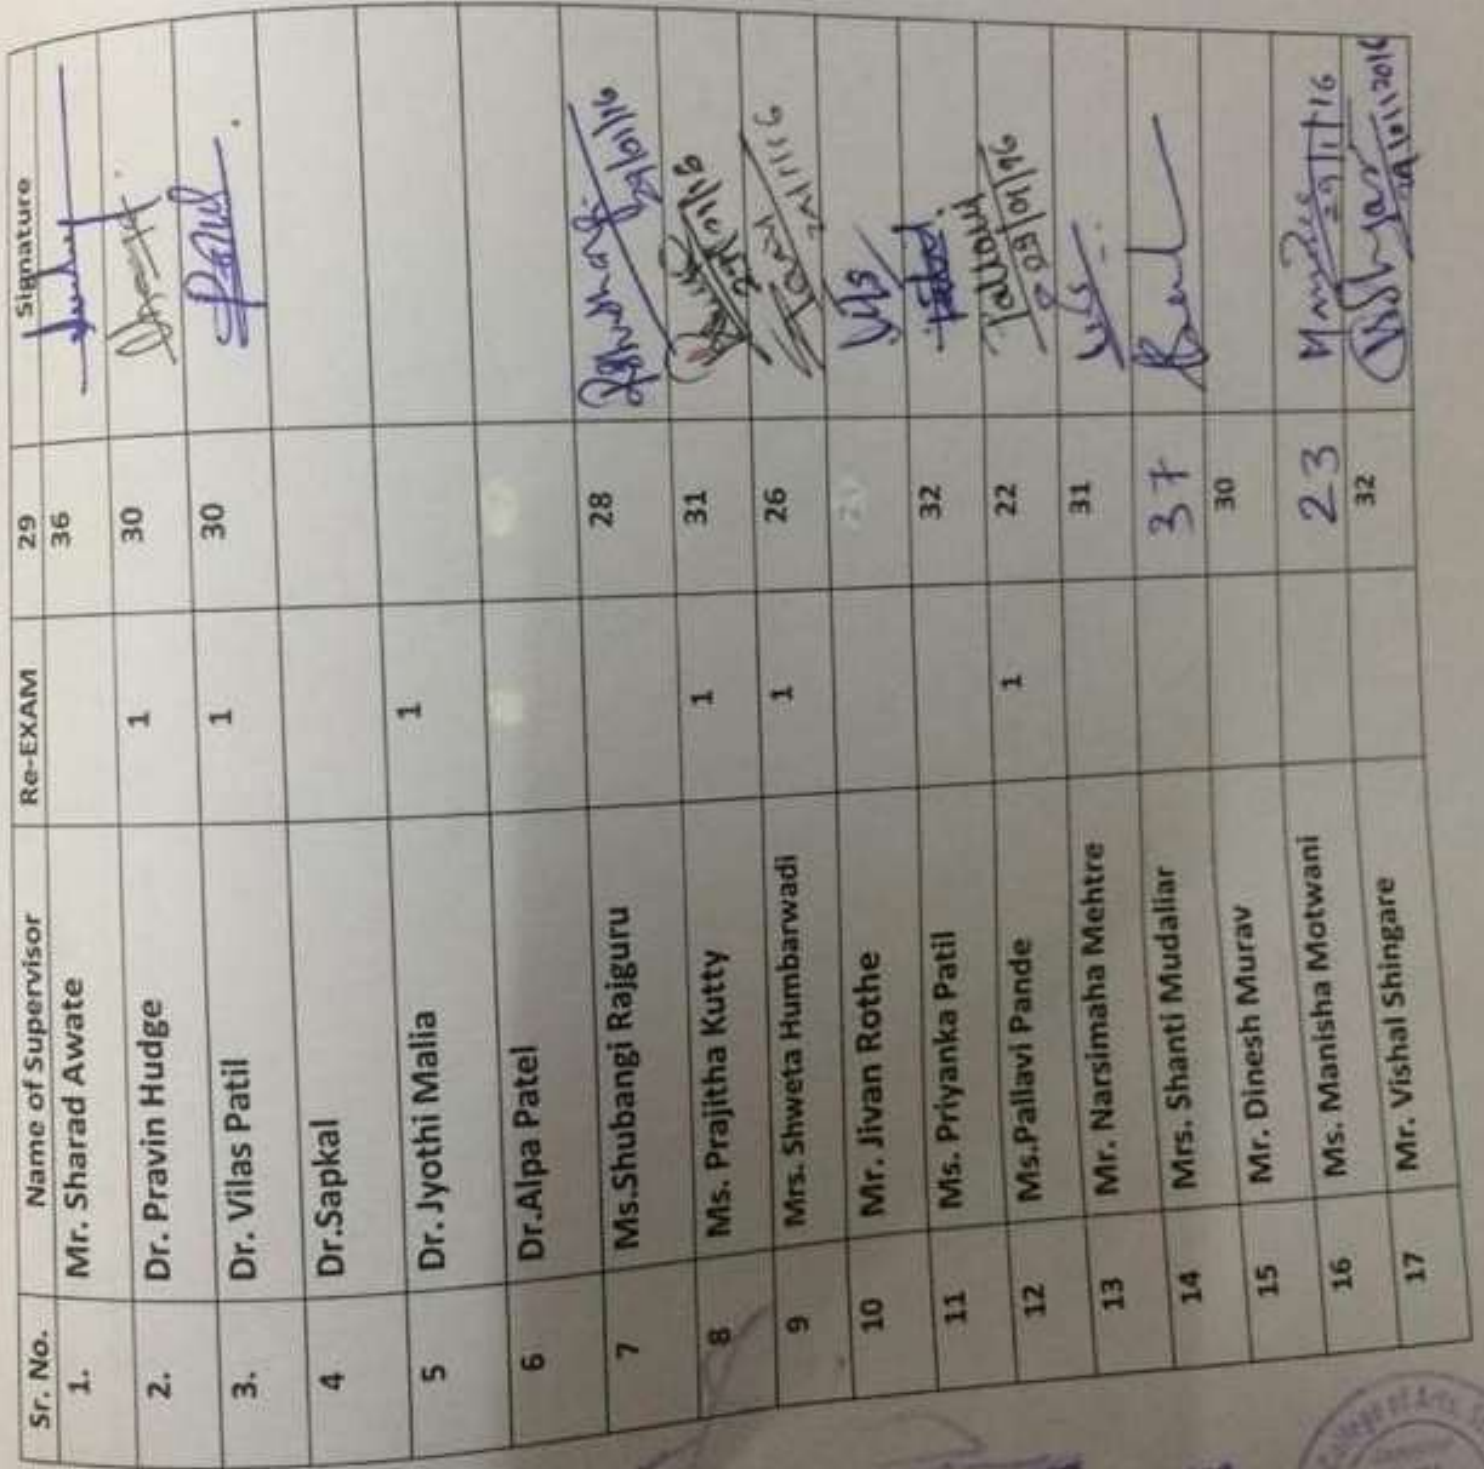 Sr. No. Name of Supervisor Re-EXAM 29 Signature
1. Mr. Sharad Awate 36
2. Dr. Pravin Hudge 1 30
3. Dr. Vilas Patil 1 30
4 Dr.Sapkal
5 Dr.Jyothi Malia 1
6 Dr.Alpa Patel
7 Ms.Shubangi Rajguru 28 29/01/16
8 Ms. Prajitha Kutty 1 31 29/01/16
9 Mrs. Shweta Humbarwadi 1 26
10 Mr. Jivan Rothe
11 Ms. Priyanka Patil 32
12 Ms.Pallavi Pande 1 22
13 Mr. Narsimaha Mehtre 31
14 Mrs. Shanti Mudaliar 37
15 Mr. Dinesh Murav 30
16 Ms. Manisha Motwani 23 29/1/16
17 Mr. Vishal Shingare 32
College of Arts